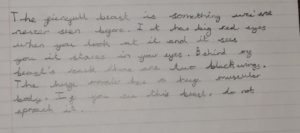 The giergull beast is something we've
never seen before. It has big red eyes
when you look at it and it sees
you it stares in your eyes. Behind my
beast's back there are two black wings.
The huge smok has a huge muscular
body. If you see this beast, do not
aproach it.